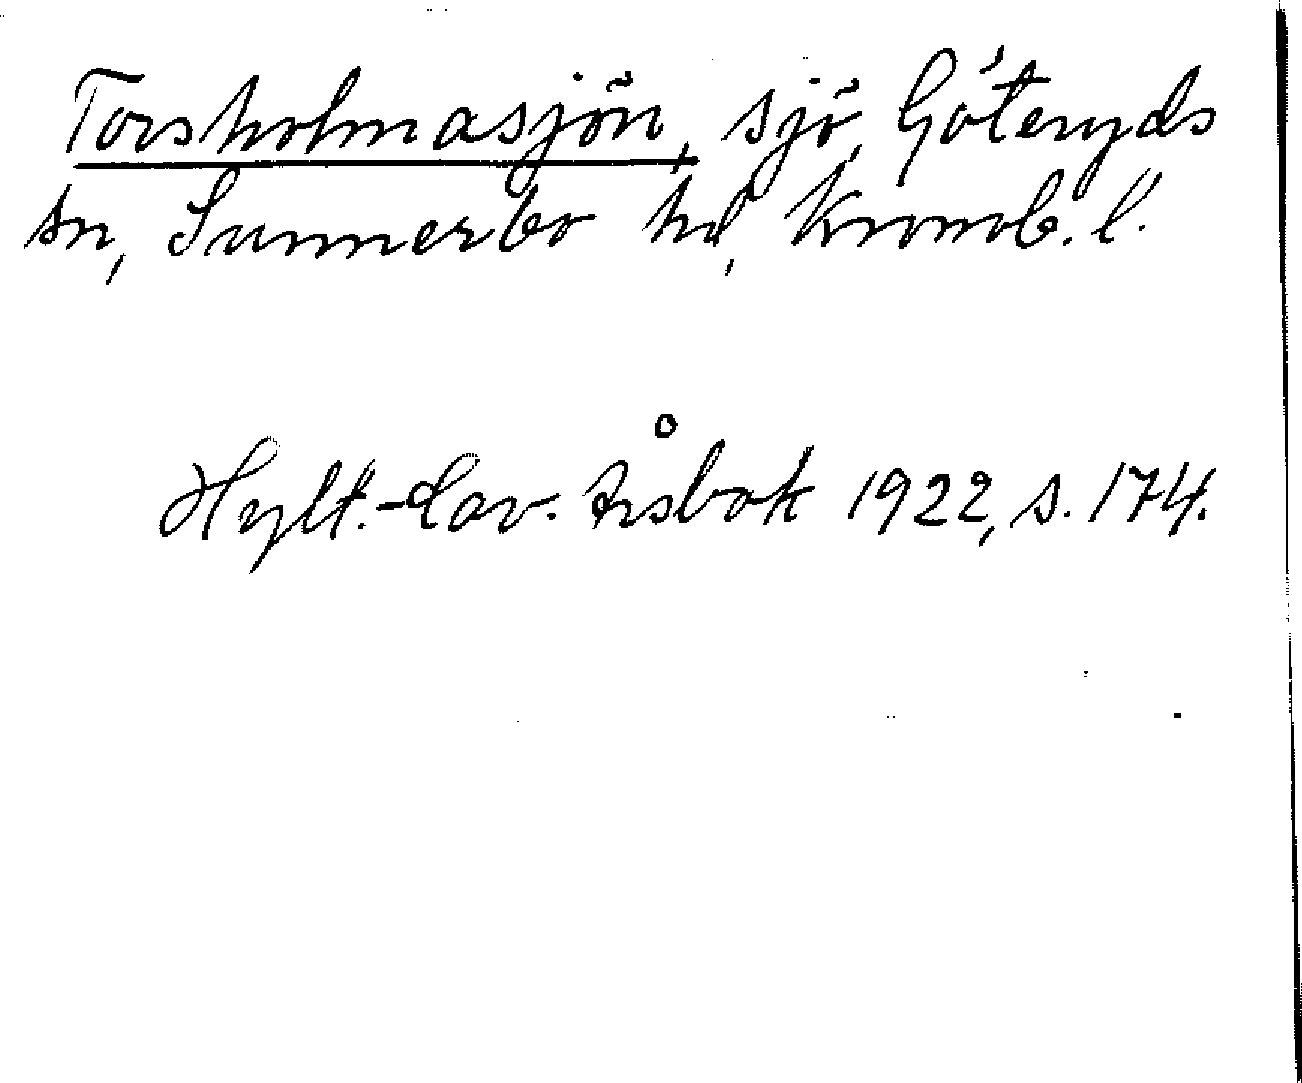 Torsholmasjön, sjö, Göteryds
sn, Sunnerbo hd, Kronob. l.
Hylt.-Cav. Årsbok 1922, s. 174.